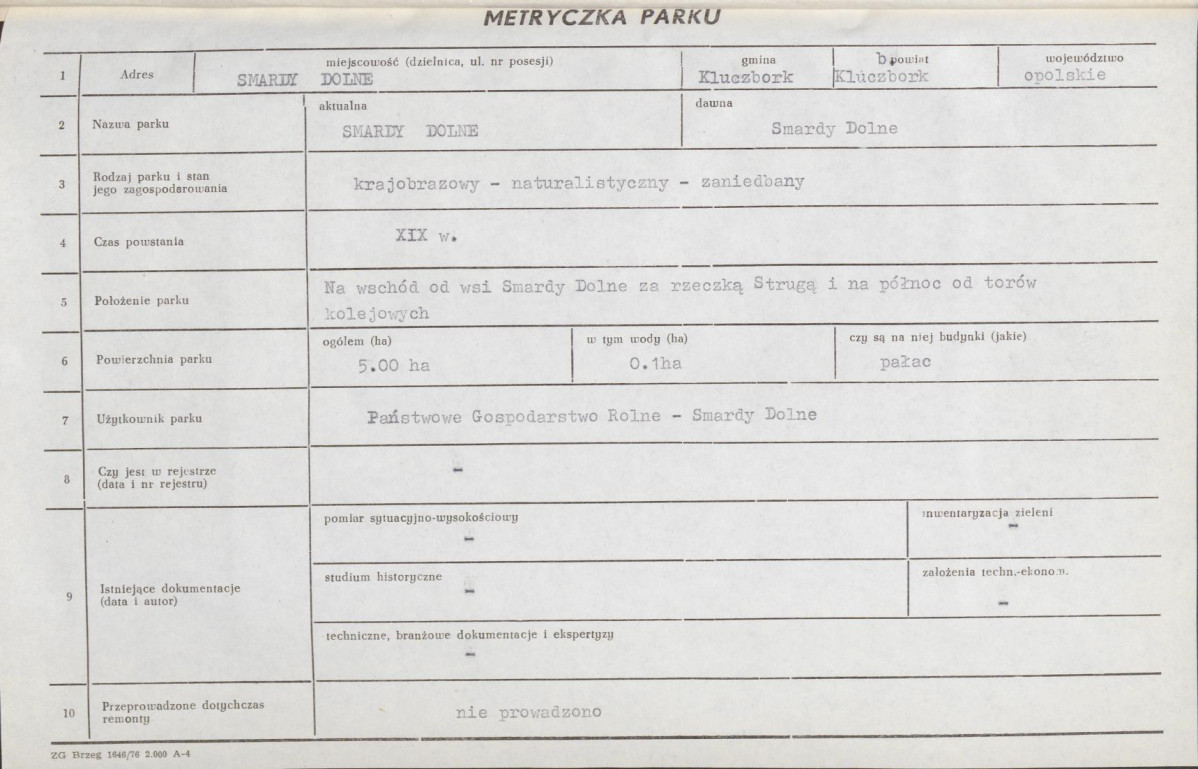 METRYCZKA PARKU
1 Adres miejscowość (dzielnica, ul. nr posesji) gmina b.powiat województwo
SMARDY DOLNE Kluczbork Kluczbork opolskie
2 Nazwa parku aktualna dawna
SMARDY DOLNE Smardy Dolne
3 Rodzaj parku i stan
jego zagospodarowania
krajobrazowy - naturalistyczny - zaniedbany
4 Czas powstania XIX w.
5 Położenie parku
Na wschód od wsi Smardy Dolne za rzeczką Strugą i na północ od torów
kolejowych
6 Powierzchnia parku ogółem (ha) w tym wody (ha) czy są na niej budynki (jakie)
5.00 ha 0.1ha pałac
7 Użytkownik parku Państwowe Gospodarstwo Rolne - Smardy Dolne
8 Czy jest w rejestrze
(data i nr rejestru)
-
9 Istniejące dokumentacje
(data i autor)
pomiar sytuacyjno-wysokościowy inwentaryzacja zieleni
- -
studium historyczne założenia techn.-ekonom.
- -
techniczne, branżowe dokumentacje i ekspertyzy
-
10 Przeprowadzone dotychczas
remonty
nie prowadzono
ZG Brzeg 1646/76 2.000 A-4